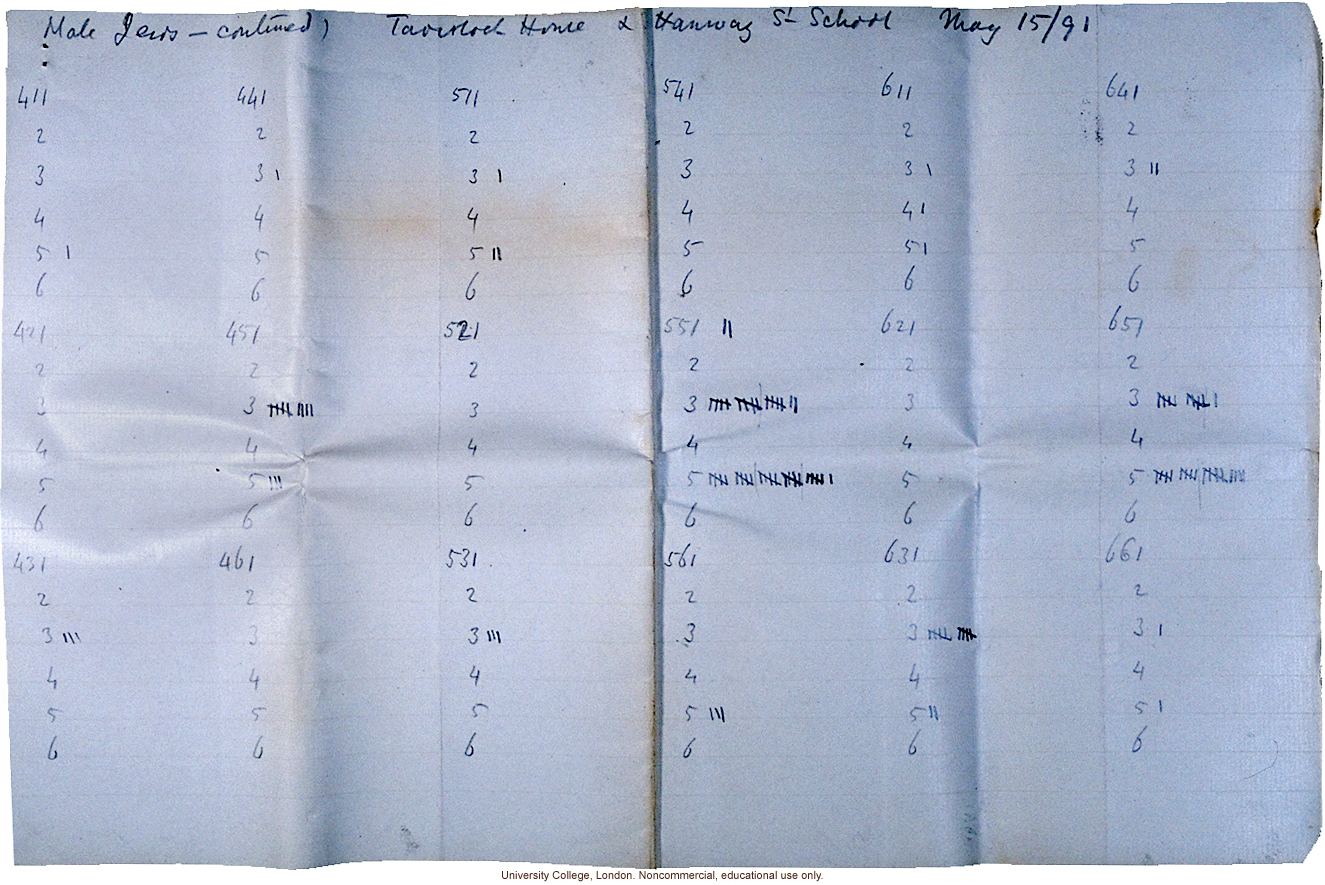 Male Jews – continued) Tavistock House & Hanway St School May 15/91
411 441 511 541 611 641
2 2 2 2 2 2
3 3 | 3 | 3 3 | 3 ||
4 4 4 4 4 | 4
5 | 5 5 || 5 5 | 5
6 6 6 6 6 6
421 451 521 551 || 621 651
2 2 2 2 2 2
3 3 3 3
4 4 4 4 4 4
5 5 ||| 5 5 5
6 6 6 6 6 6
431 461 531 561 631 661
2 2 2 2 2 2
3 ||| 3 3 ||| 3 3 3 |
4 4 4 4 4 4
5 5 5 5 ||| 5 || 5 |
6 6 6 6 6 6
University College, London. Noncommercial, educational use only.